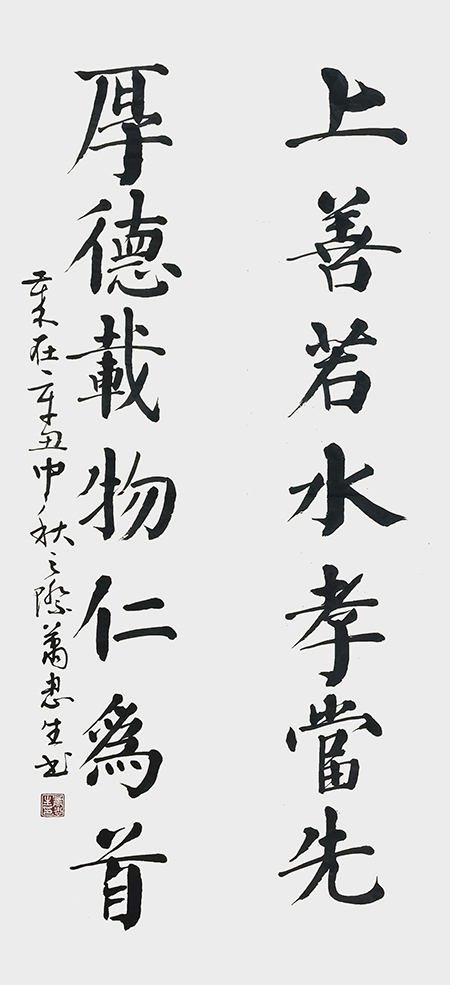 上善若水孝當先
厚德載物仁為首
歲在辛丑中秋之際蕭忠生书